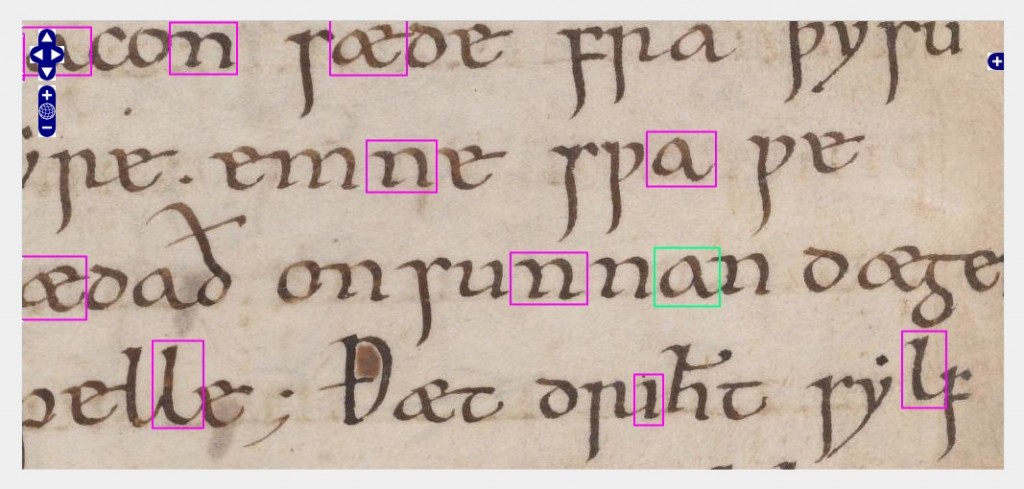 acon sæde fra þysu
yre. emne sƿa ƿe
ædað on sunnan dæge
pelle ; Þæt driħt sẏlf